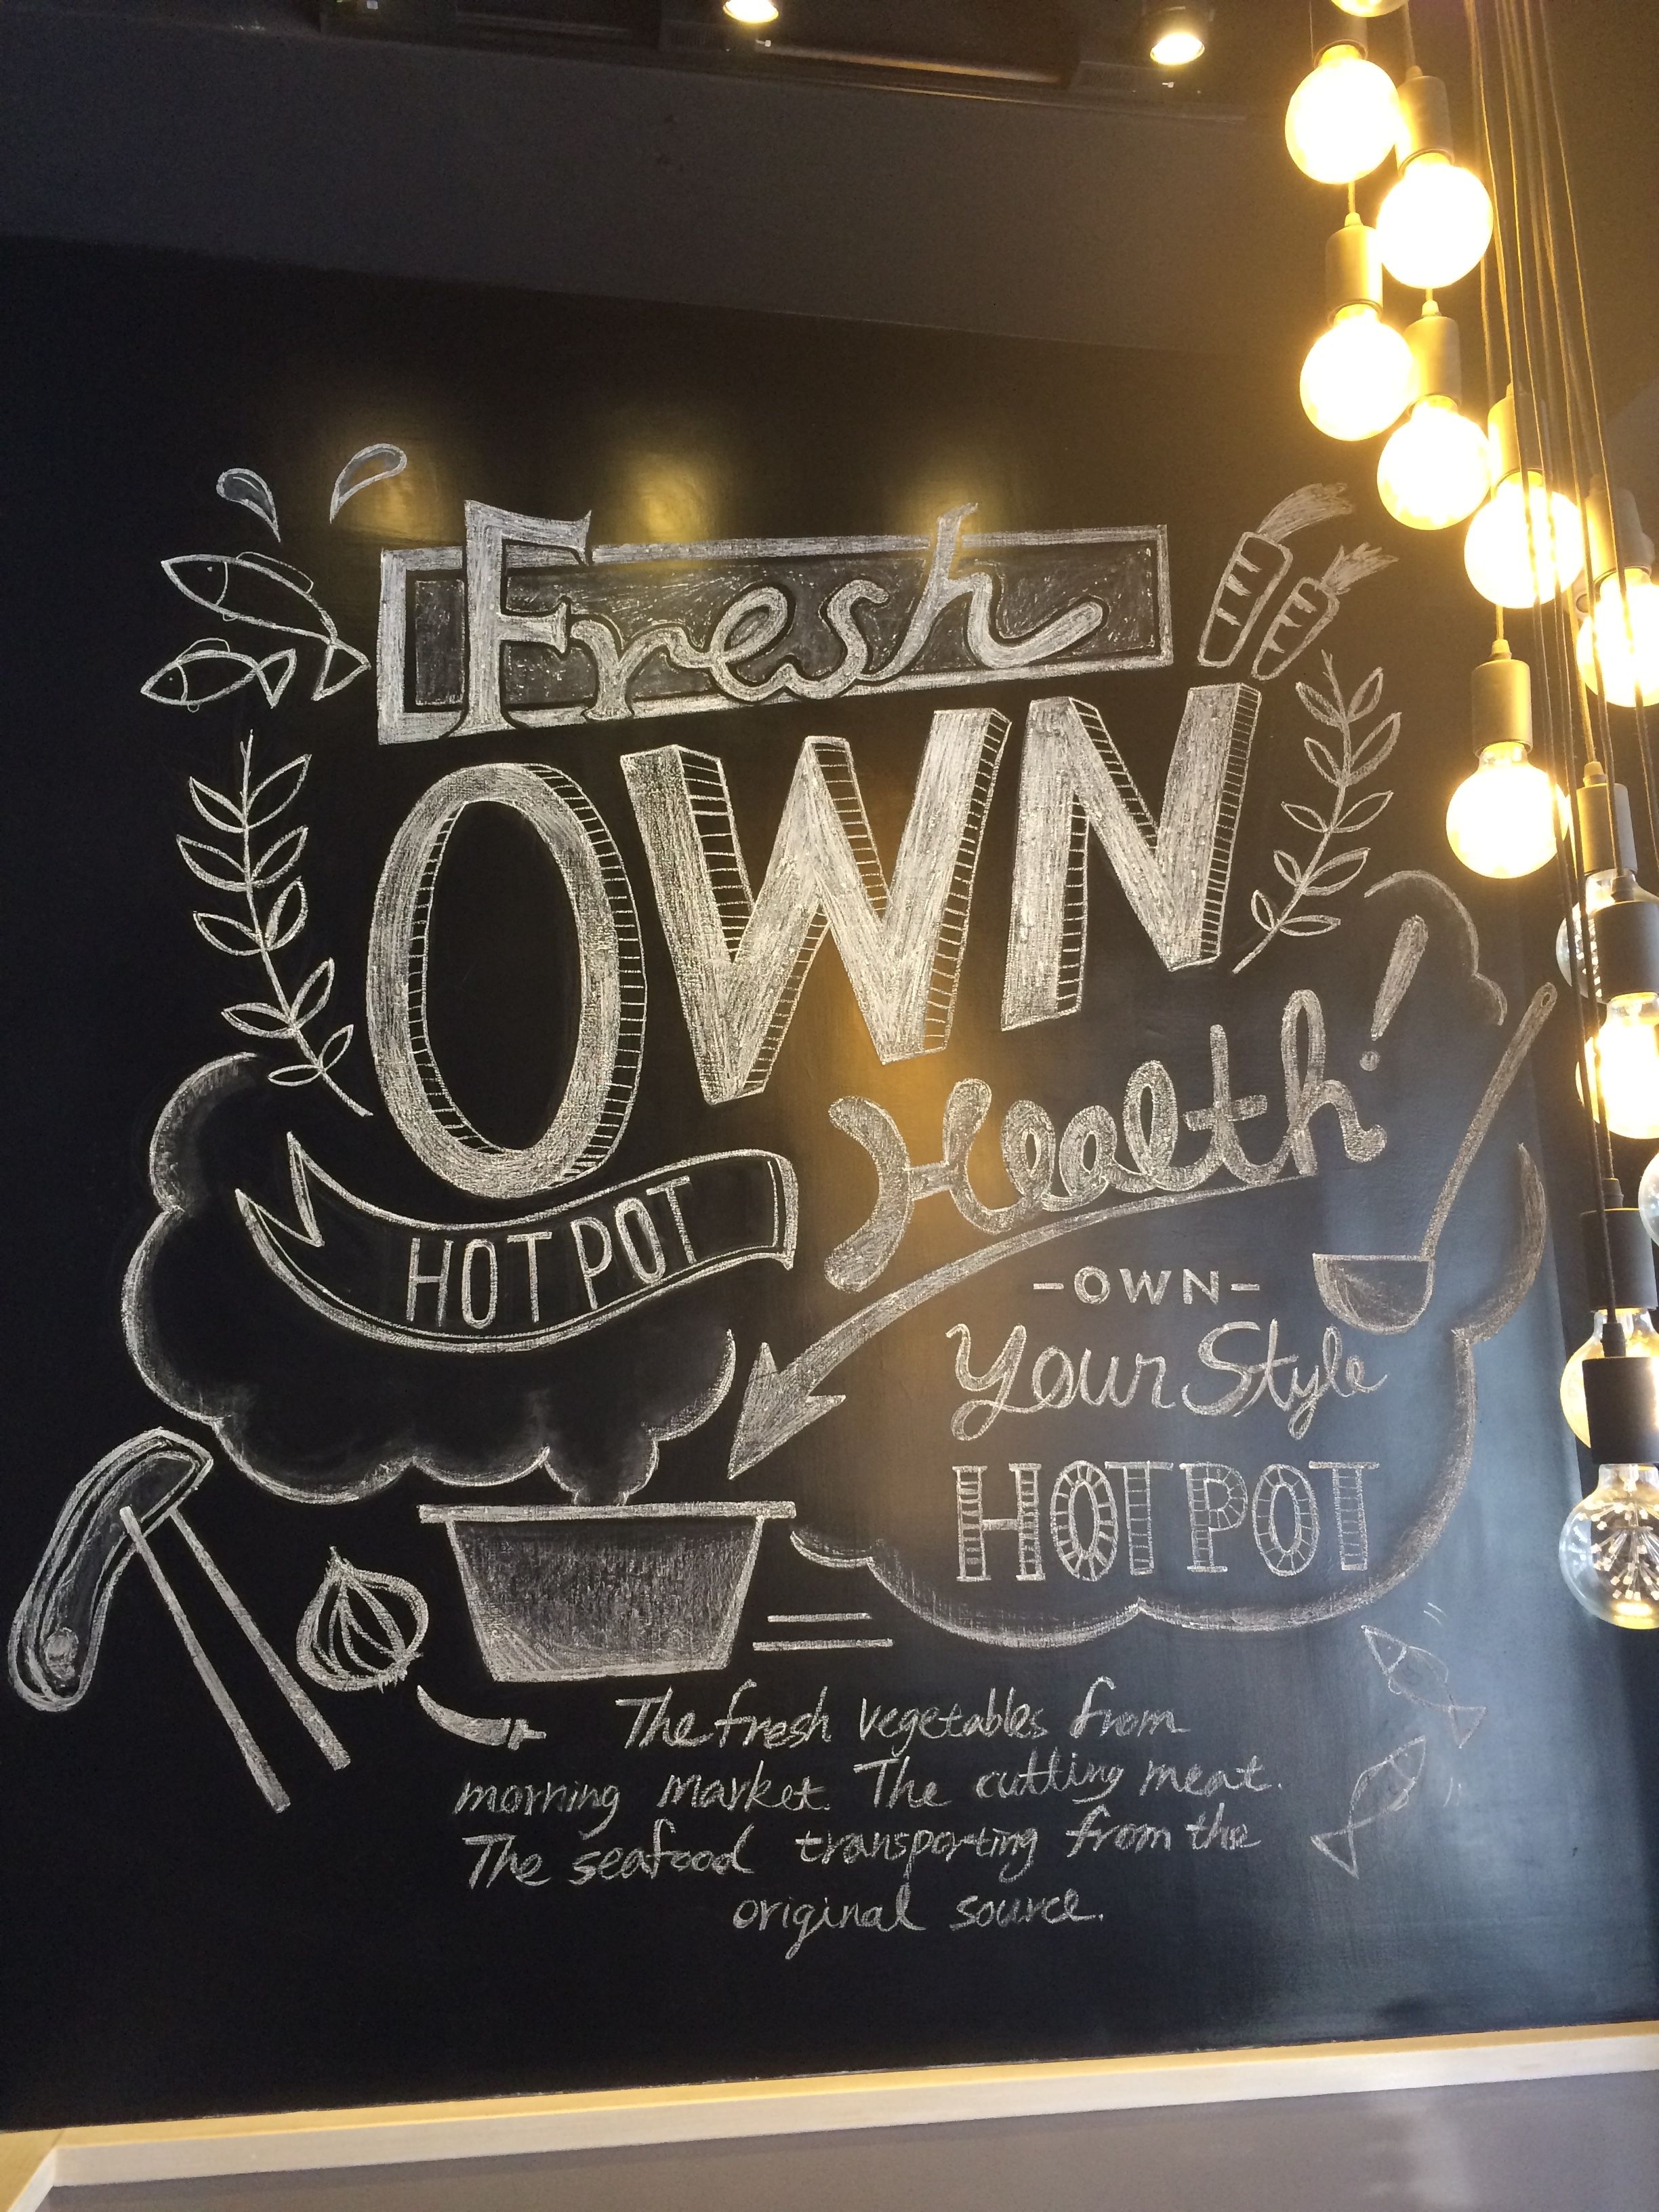 Fresh
OWN
HOT POT
Health!
-OWN-
Your Style
HOTPOT
The fresh vegetables from
morning market. The cutting meat.
The seafood transporting from the
original source.